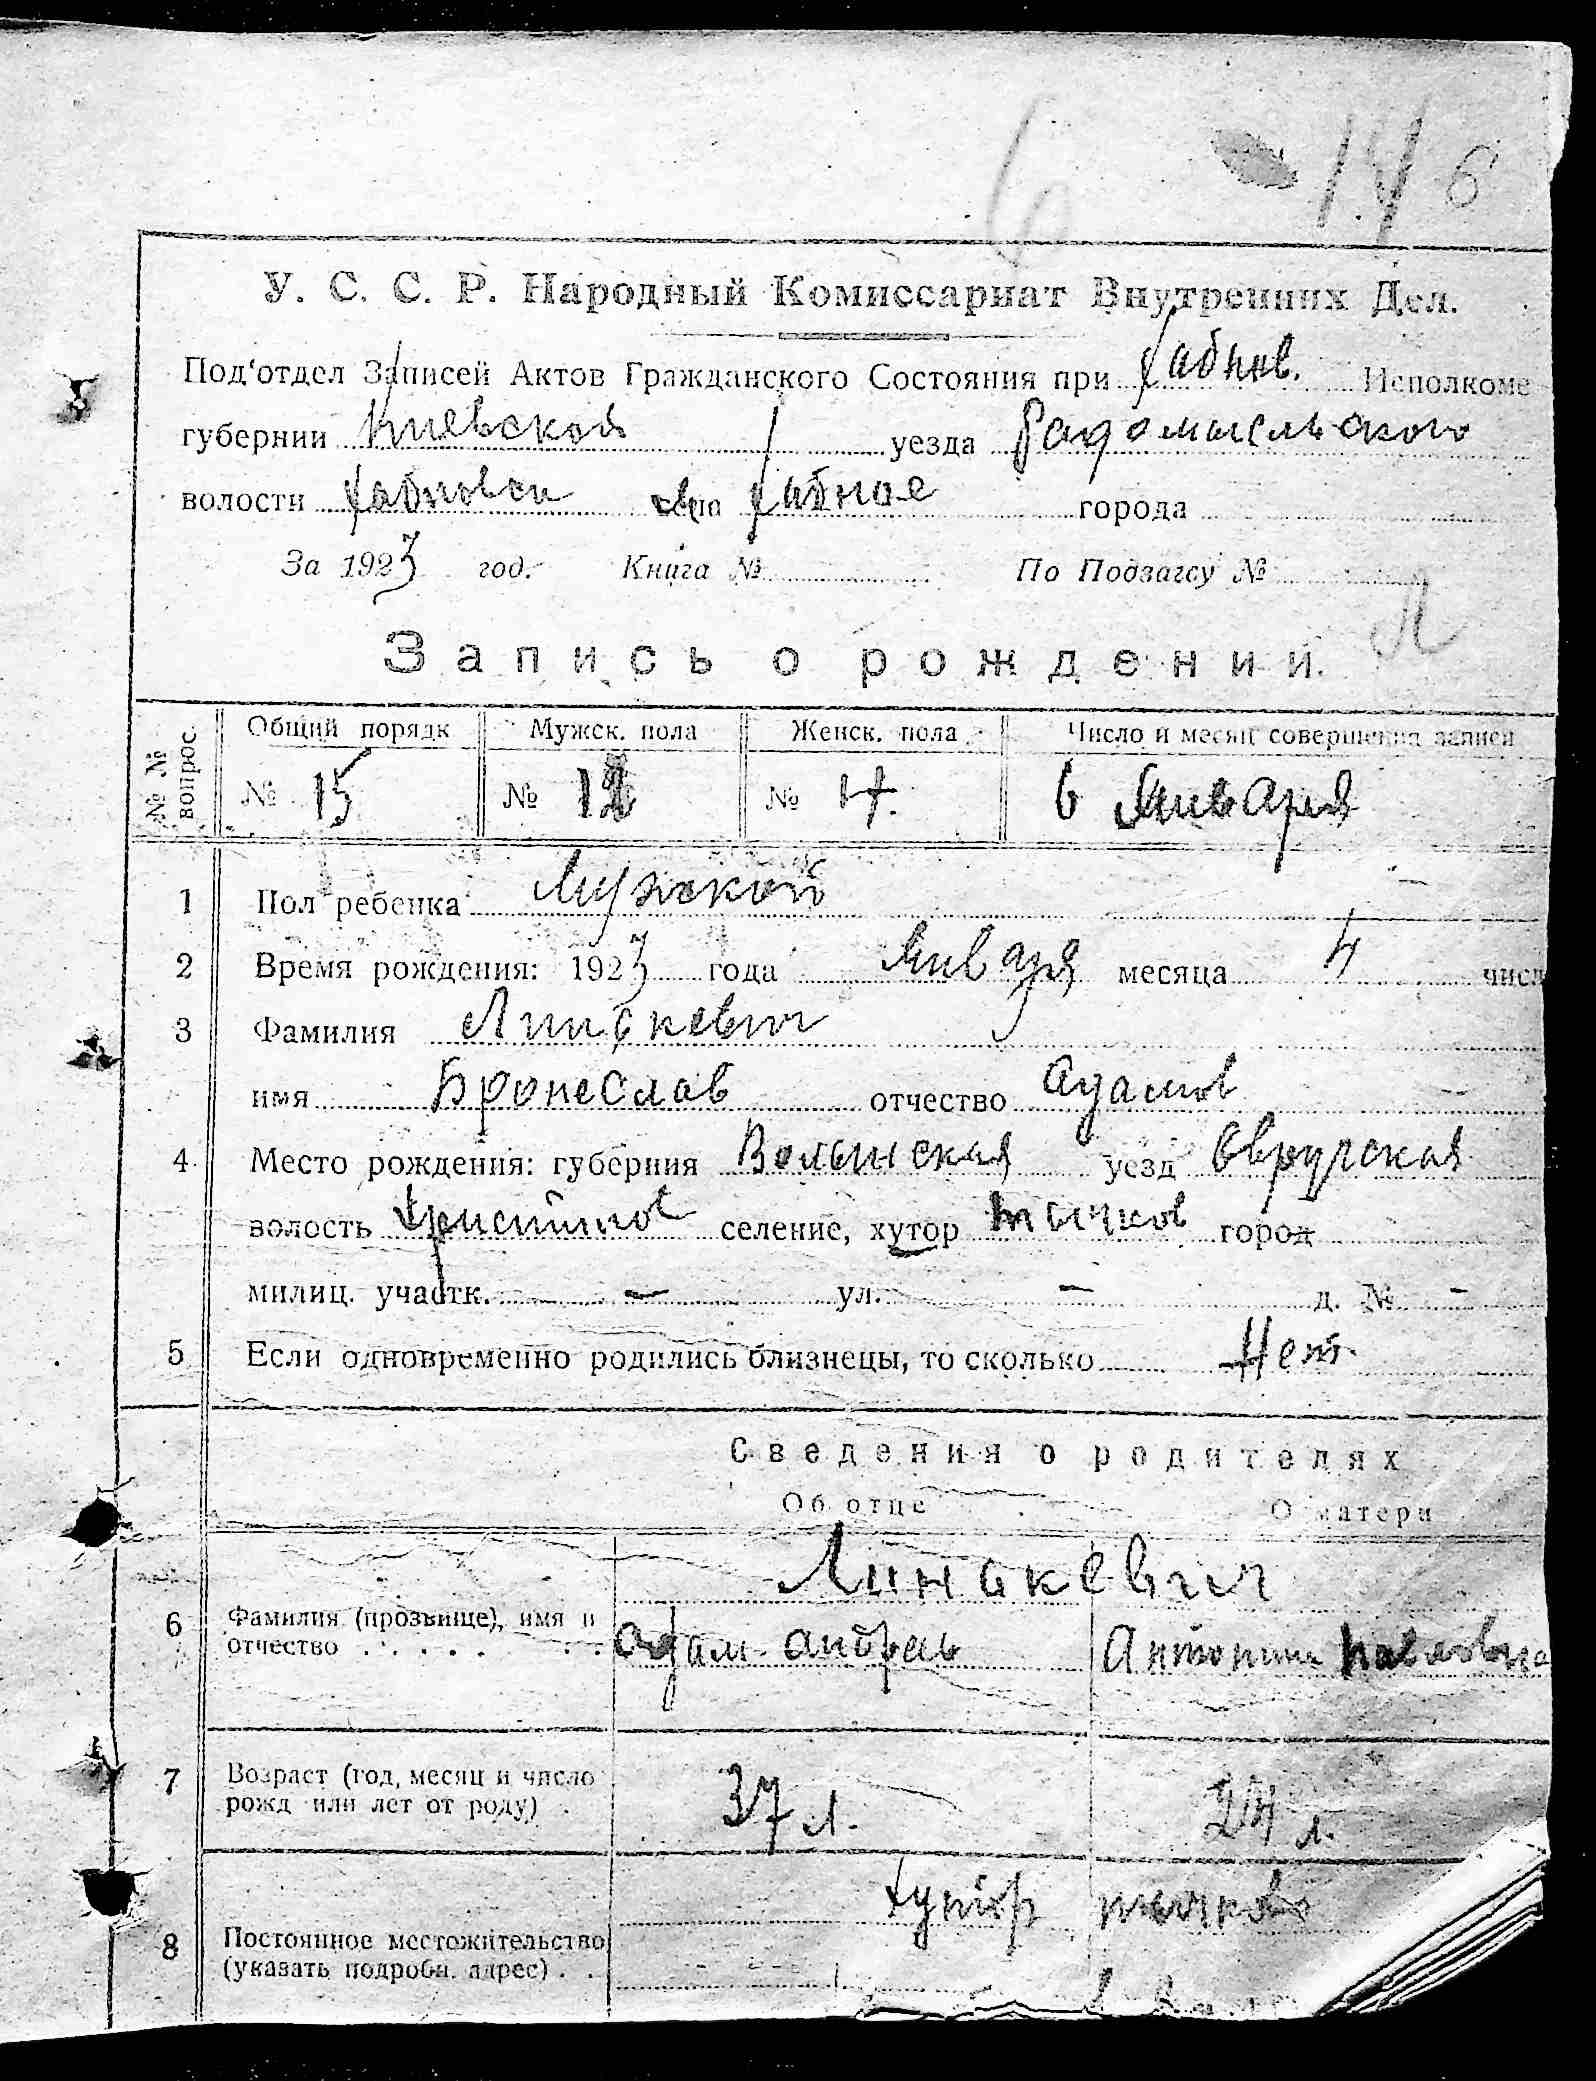 146
У. С. С. Р. Народный Комиссариат Внутренних Дел.
Под'отдел Записей Актов Гражданского Состояния при Хабнов. Исполкоме
губернии Киевской уезда Радомысльского
волости Хабновск села Хабное города
За 1923 год. Книга № По Подзагсу №
Запись о рождении.
№№ вопрос. Общий порядк Мужск. пола Женск. пола Число и месяц совершения записи
№ 15 № № 4. 6 Января
1 Пол ребенка Мужской
2 Время рождения: 1923 года Января месяца 4 числ
3 Фамилия
имя Бронеслав отчество Адамов
4 Место рождения: губерния Волынская уезд Овручская
волость селение, хутор город
милиц. участк. — ул. — д. № -
5 Если одновременно родились близнецы, то сколько Нет.
Сведения о родителях
Об отце О матери
Линакевич
6 Фамилия (прозвище), имя и
отчество Адам Андреев Антонина Павловна
7 Возраст (год, месяц и число
рожд или лет от роду) 37 л. 24 л.
хутор
8 Постоянное местожительство
(указать подробн. адрес)